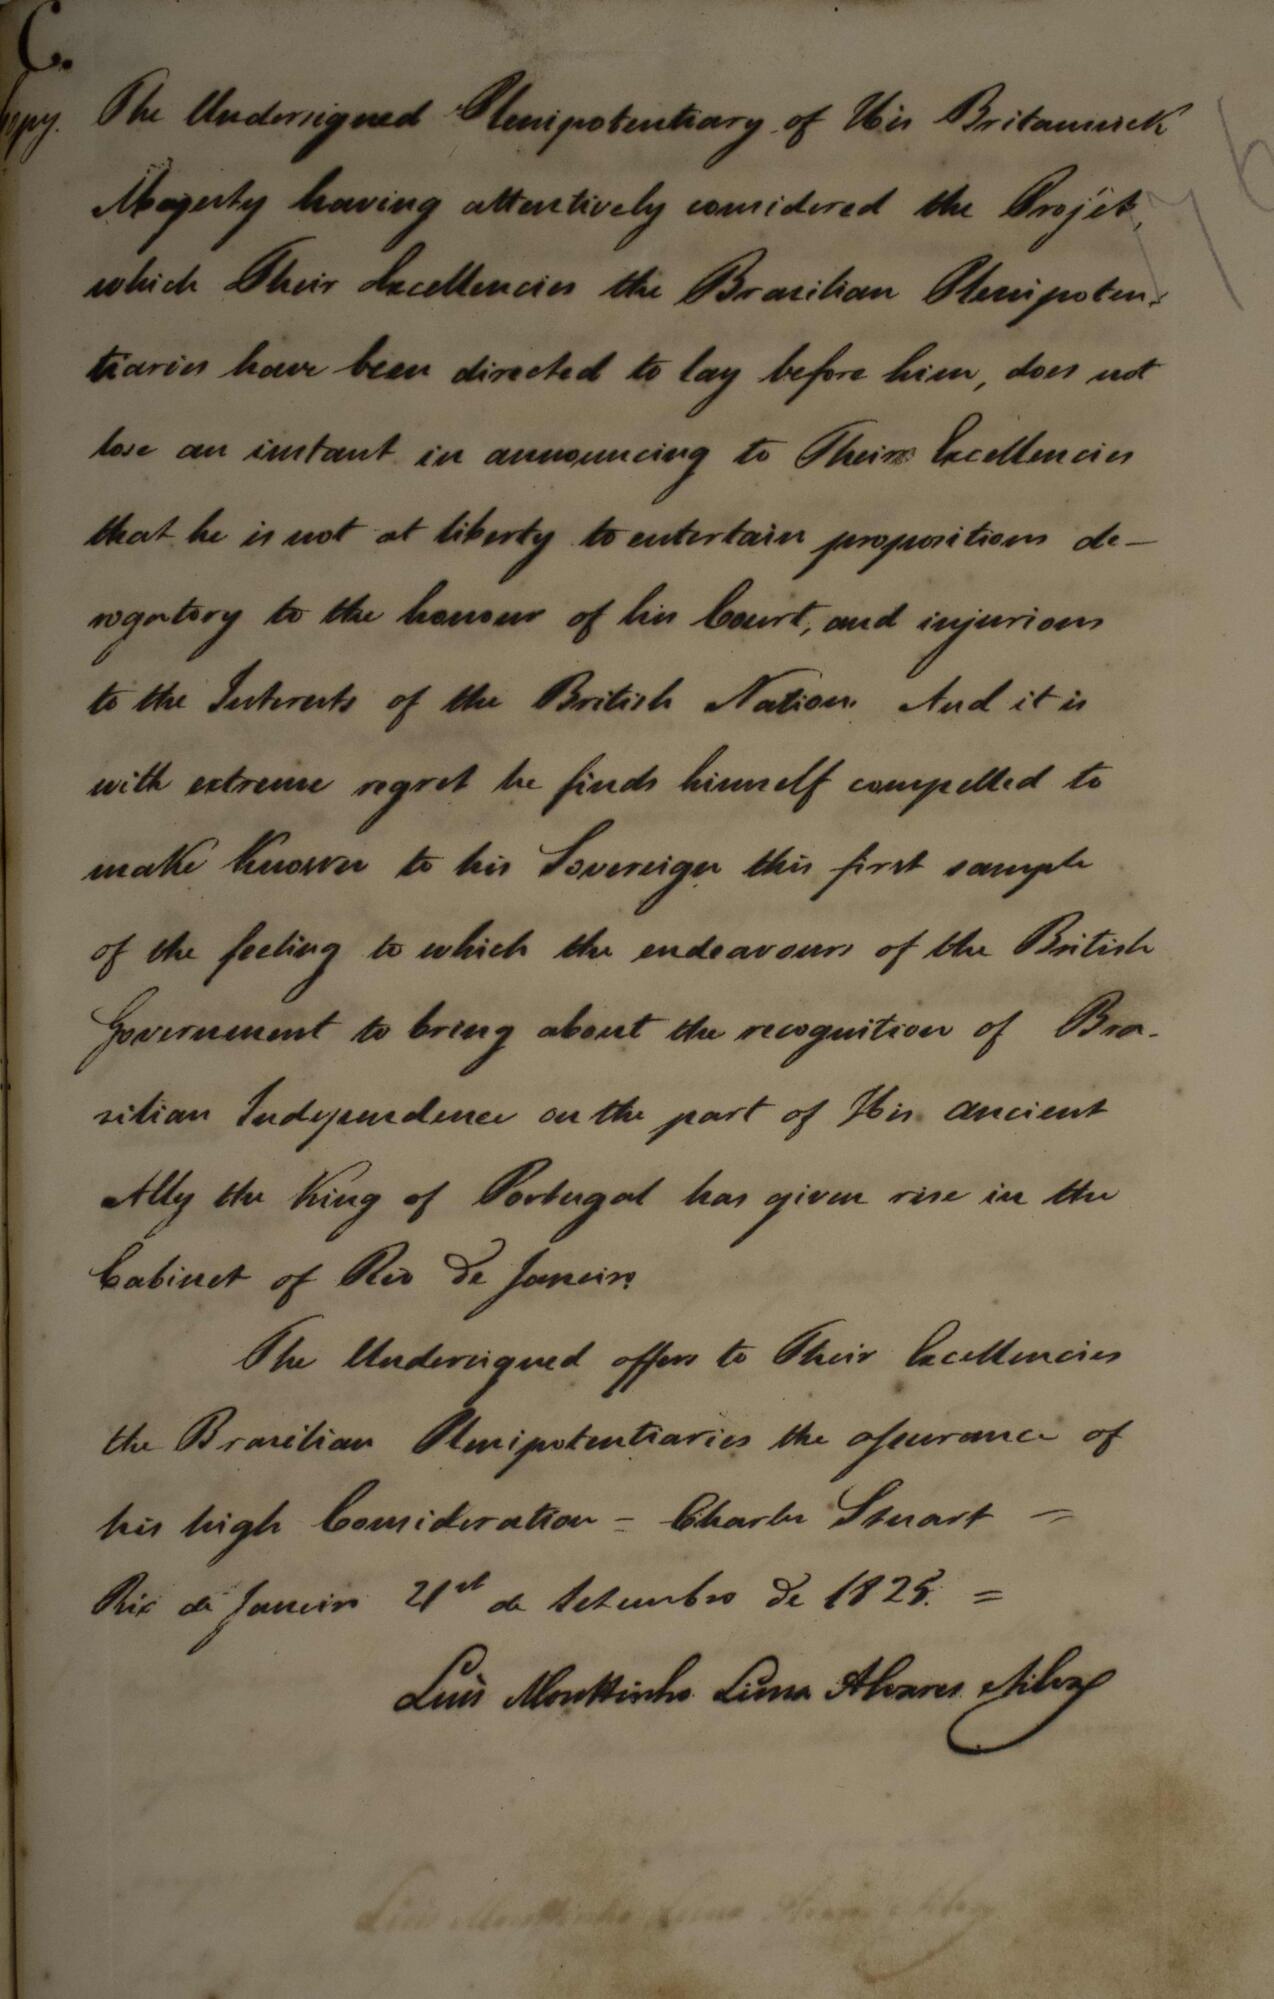 C.
Copy. The Undersigned Plenipotentiary of His Britannick
Magesty having attentively considered the Projét,
which Their Excellencies the Brazilian Plenipoten-
tiaries have been directed to lay before him, does not
lose an instant in announcing to Their Excellencies
that he is not at liberty to entertain propositions de-
rogatory to the honour of his Court, and injurious
to the Interests of the British Nation. And it is
with extreme regret he finds himself compelled to
make Known to his Sovereign this first sample
of the feeling to which the endeavours of the British
Government to bring about the recognition of Bra-
zilian Independence on the part of His ancient
Ally the King of Portugal has given rise in the
Cabinet of Rio de Janeiro.
The Undersigned offers to Their Excellencies
the Brazilian Plenipotentiaries the assurance of
his high Consideration = Charles Stuart =
Rio de Janeiro 21st de Setembro de 1825. =
Luis Mouttinho Lima Alvares eSilva